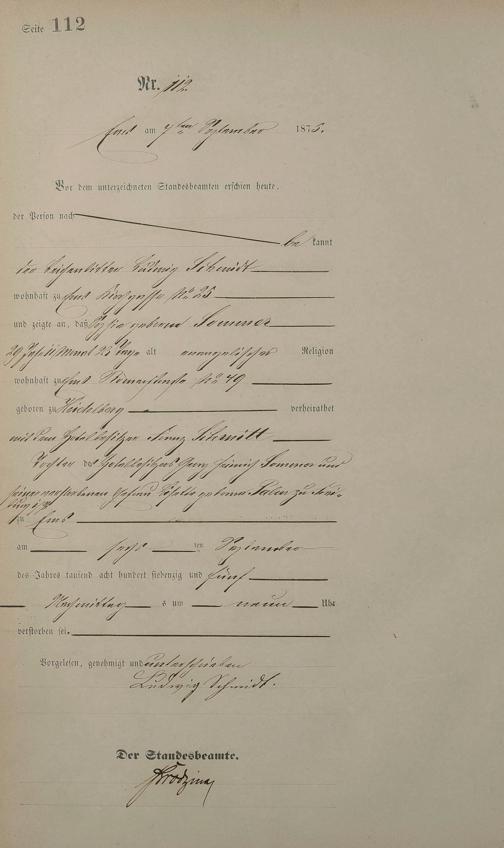 Seite 112
Nr. 112.
Ems am 7ten September 1875.
Vor dem unterzeichneten Standesbeamten erschien heute,
der Person nach
be kannt
der Ludwig Schmidt
wohnhaft zu Ems No 25
und zeigte an, daß geborene Sommer
29 Jahr Monat 23 Tage alt evangelischer Religion
wohnhaft zu Ems Römerstraße No 49
geboren zu Heidelberg verheirathet
mit dem Hotelbesitzer Franz Schmitt
Tochter des Hotelbesitzers Georg Heinrich Sommer und
seiner verstorbenen Ehefrau geborene zu
zu Ems
am sechs ten September
des Jahres tausend acht hundert siebenzig und fünf
Nachmittag s um neun Uhr
verstorben sei.
Vorgelesen, genehmigt und unterschrieben
Ludwig Schmidt.
Der Standesbeamte.